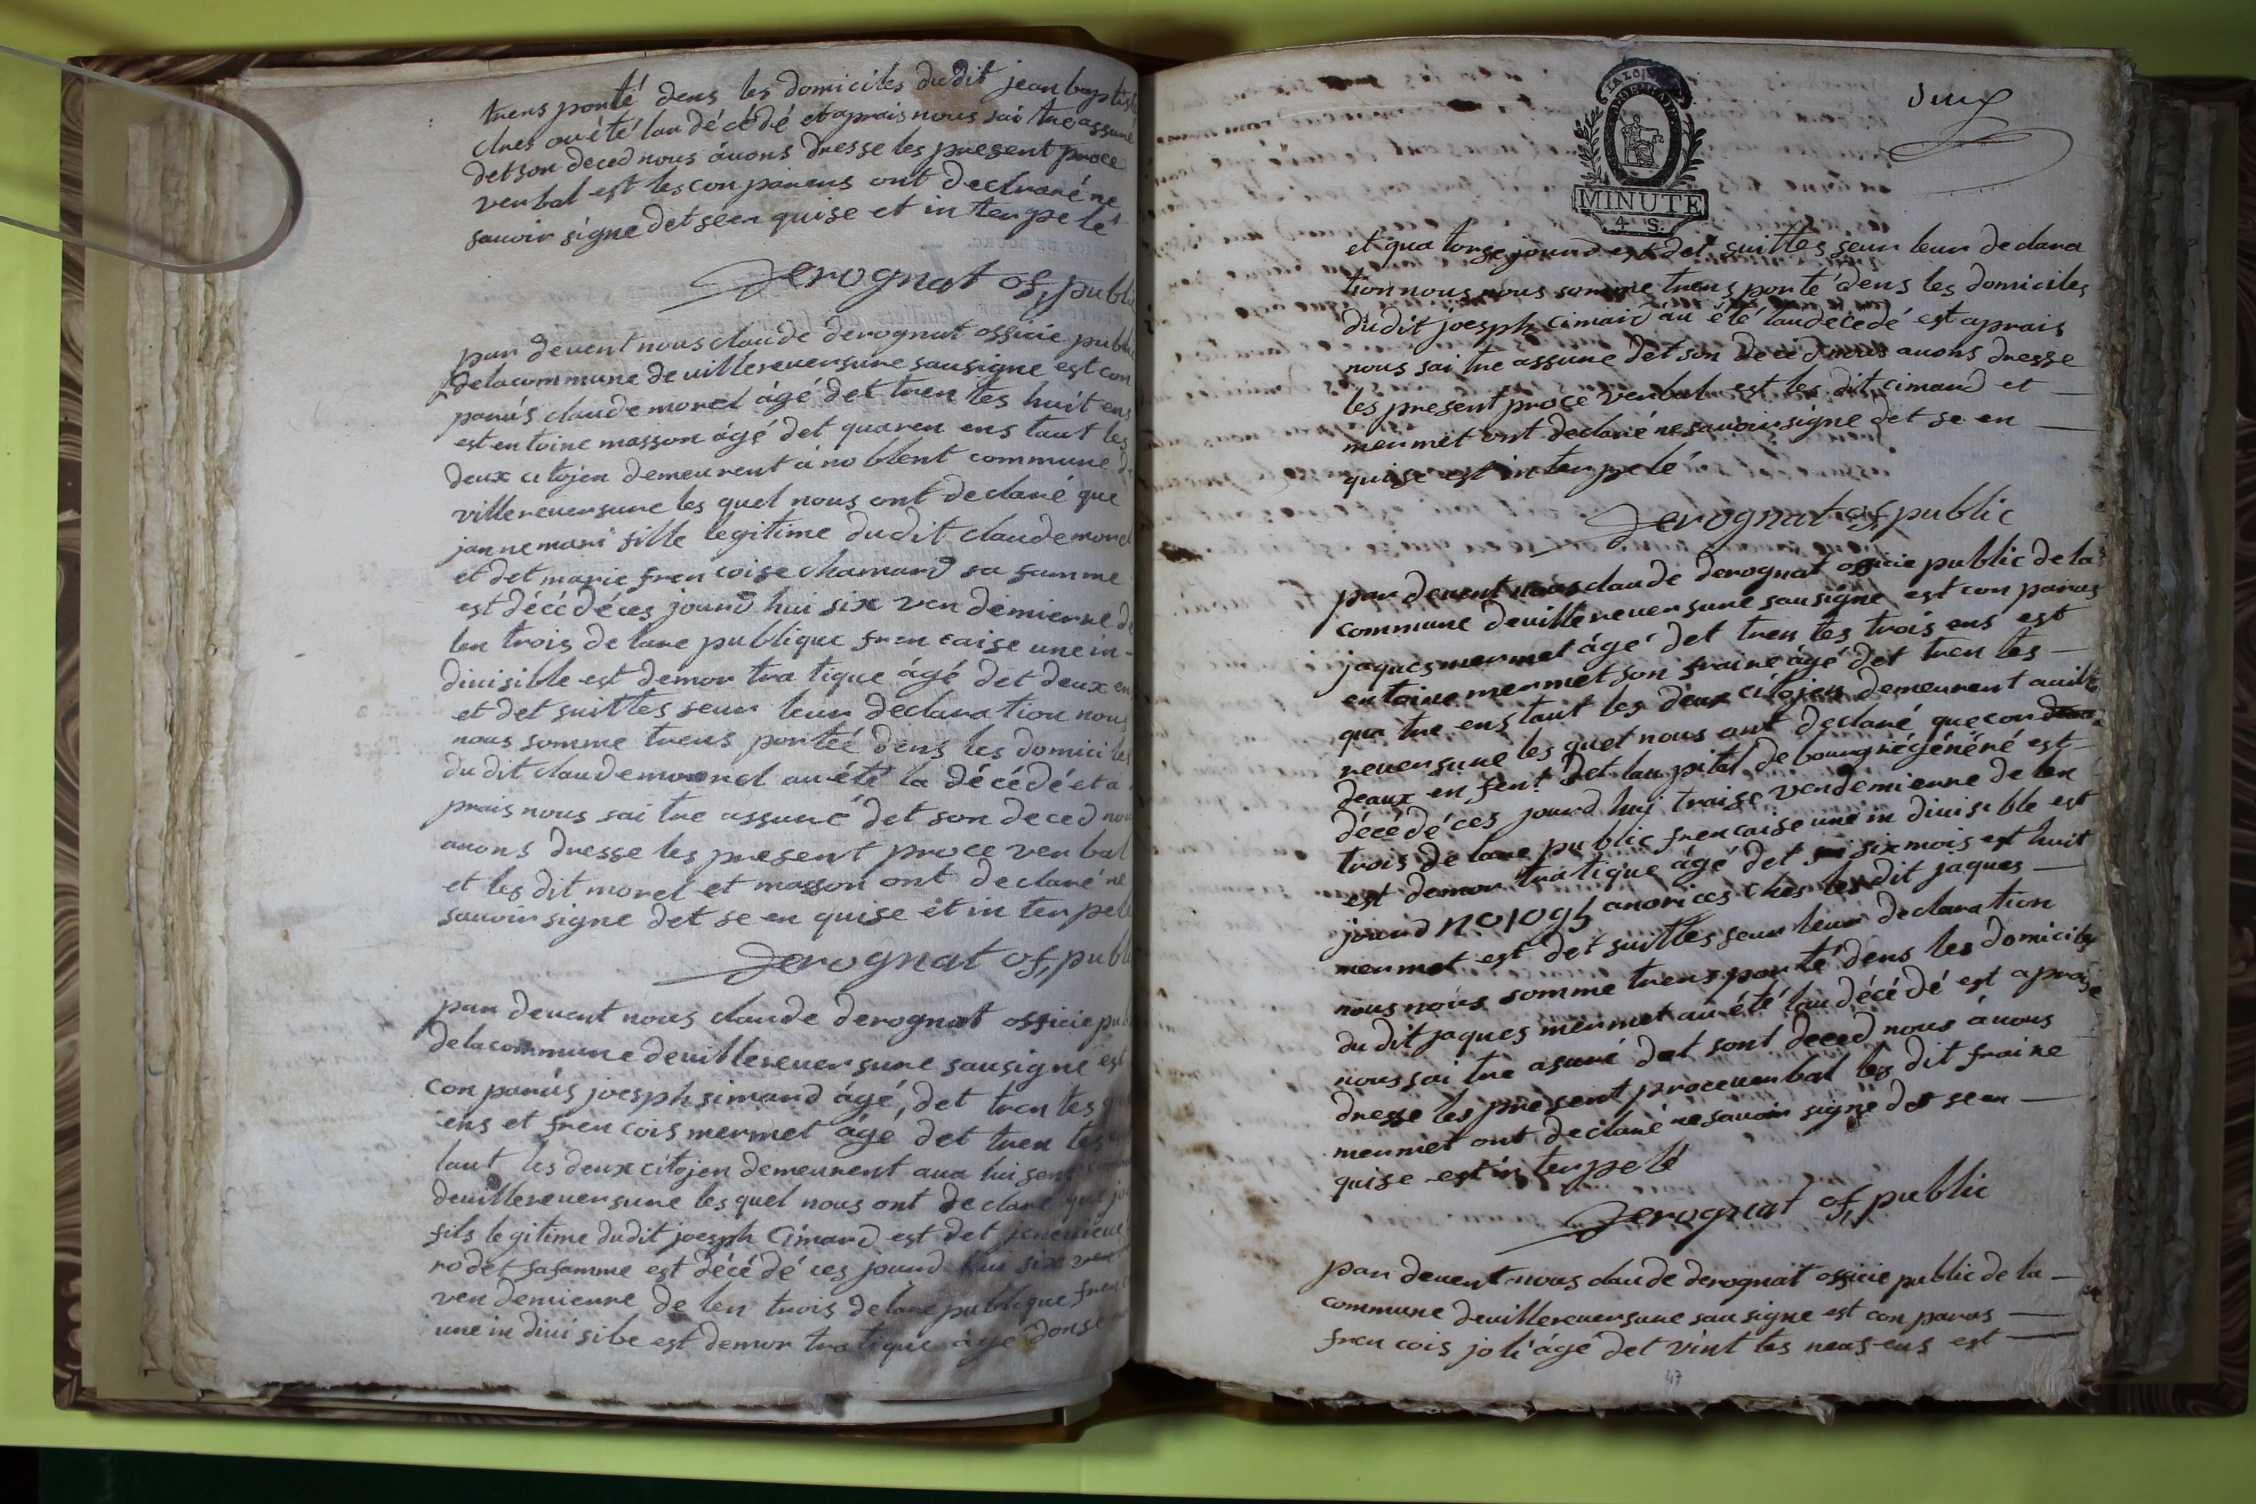 trens porté dens les domiciles dudit jean baptiste
clres ou été lau décédé et aprais nous sai tre assure
det son deced nous áuons dresse les present proce
verbal est les con parens ont declraré ne
sauoir signe det séen quise et in terpe lé
Derognat of, public
par deuent nous claude derognat ossicie public
de la commune de uillereuersure sausigne est con
parús claude morel ágé det tren tes huit ens
est en toine masson ágé det quaren ens taut les
deux citojen demeurent á noblent commune de
villereuersure les quel nous ont declaré que
janne mari fille legitime dudit claude morel
et det marie fren coise chamard sa famme
est décédé ces jourd hui six ven demierre de
len trois de lare publique fren caise une in-
diuisible est demor tra tique ágé det deux ens
et det suittes seur leur declaration nous
nous somme trens portéé dens les domiciles
du dit claude morel au été la décédé et a
prais nous sai tre assuré det son deced nous
auons dresse les present proce verbal
et les dit morel et masson ont declaré ne
sauoir signe det se en quise et in terpelé
Derognat of, public
par deuent nous claude derognat ossicie public
de la commune de uillereuersure sausigné est
con parús joesph simard ágé, det tren tes
ens et fren cois mermet ágé det tren tes
taut les deux citojen demeurent aua lui sent
de uillereuersure les quel nous ont declaré que
fils legitime dudit joesph Cimard est det jeneuieue
rodet sa famme est décédé ces jourd hui six ven
ven demierre de len trois de lare publique fren
une in diui sibe est demor tra tique ágé donse
MINUTE
4 S.
et qua torse jourd est det suittes seur leur declara
tion nous nous somme trens porté dens les domiciles
dudit joesph cimard áu été laudecedé est aprais
nous sai tre assure det son deced nous auons dresse
les present proce verbal est les dit cimard et
mermet ont declaré ne sauoir signe det se en
quise est in terpelé
Derognat of, public
par deuent nous claude derognat ossicie public de la
commune de uillereuersure sausigne est con parus
jaques mermet ágé det tren tes trois ens est
en toine mermet son fraire ágé det tren tes
qua tre ens taut les deux citojen demeurent auille
reuersure les quel nous ont declaré que con
deaux en fent det lau pital de bourg régénéré est
décédé ces jourd huj traise vendemierre de len
trois de lare public francaise une in diuisible est
est demor tra tique ágé det six mois est huit
jourd no 1096 anorices ches les dit jaques
mermet est det suittes seur leur declaration
nous nous somme trens porté dens les domiciles
du dit jaques mermet au été lau décédé est aprais
nous sai tre asuré det sont deced nous áuons
dresse les present proceuerbal les dit fraire
mermet ont declaré ne sauoir signe det se en
quise est in terpelé
Derognat of, public
par deuent nous claude derognat ossicie public de la
commune de uillereuersure sau signe est con parus
fren cois joli ágé det vint tes neus ens est
47